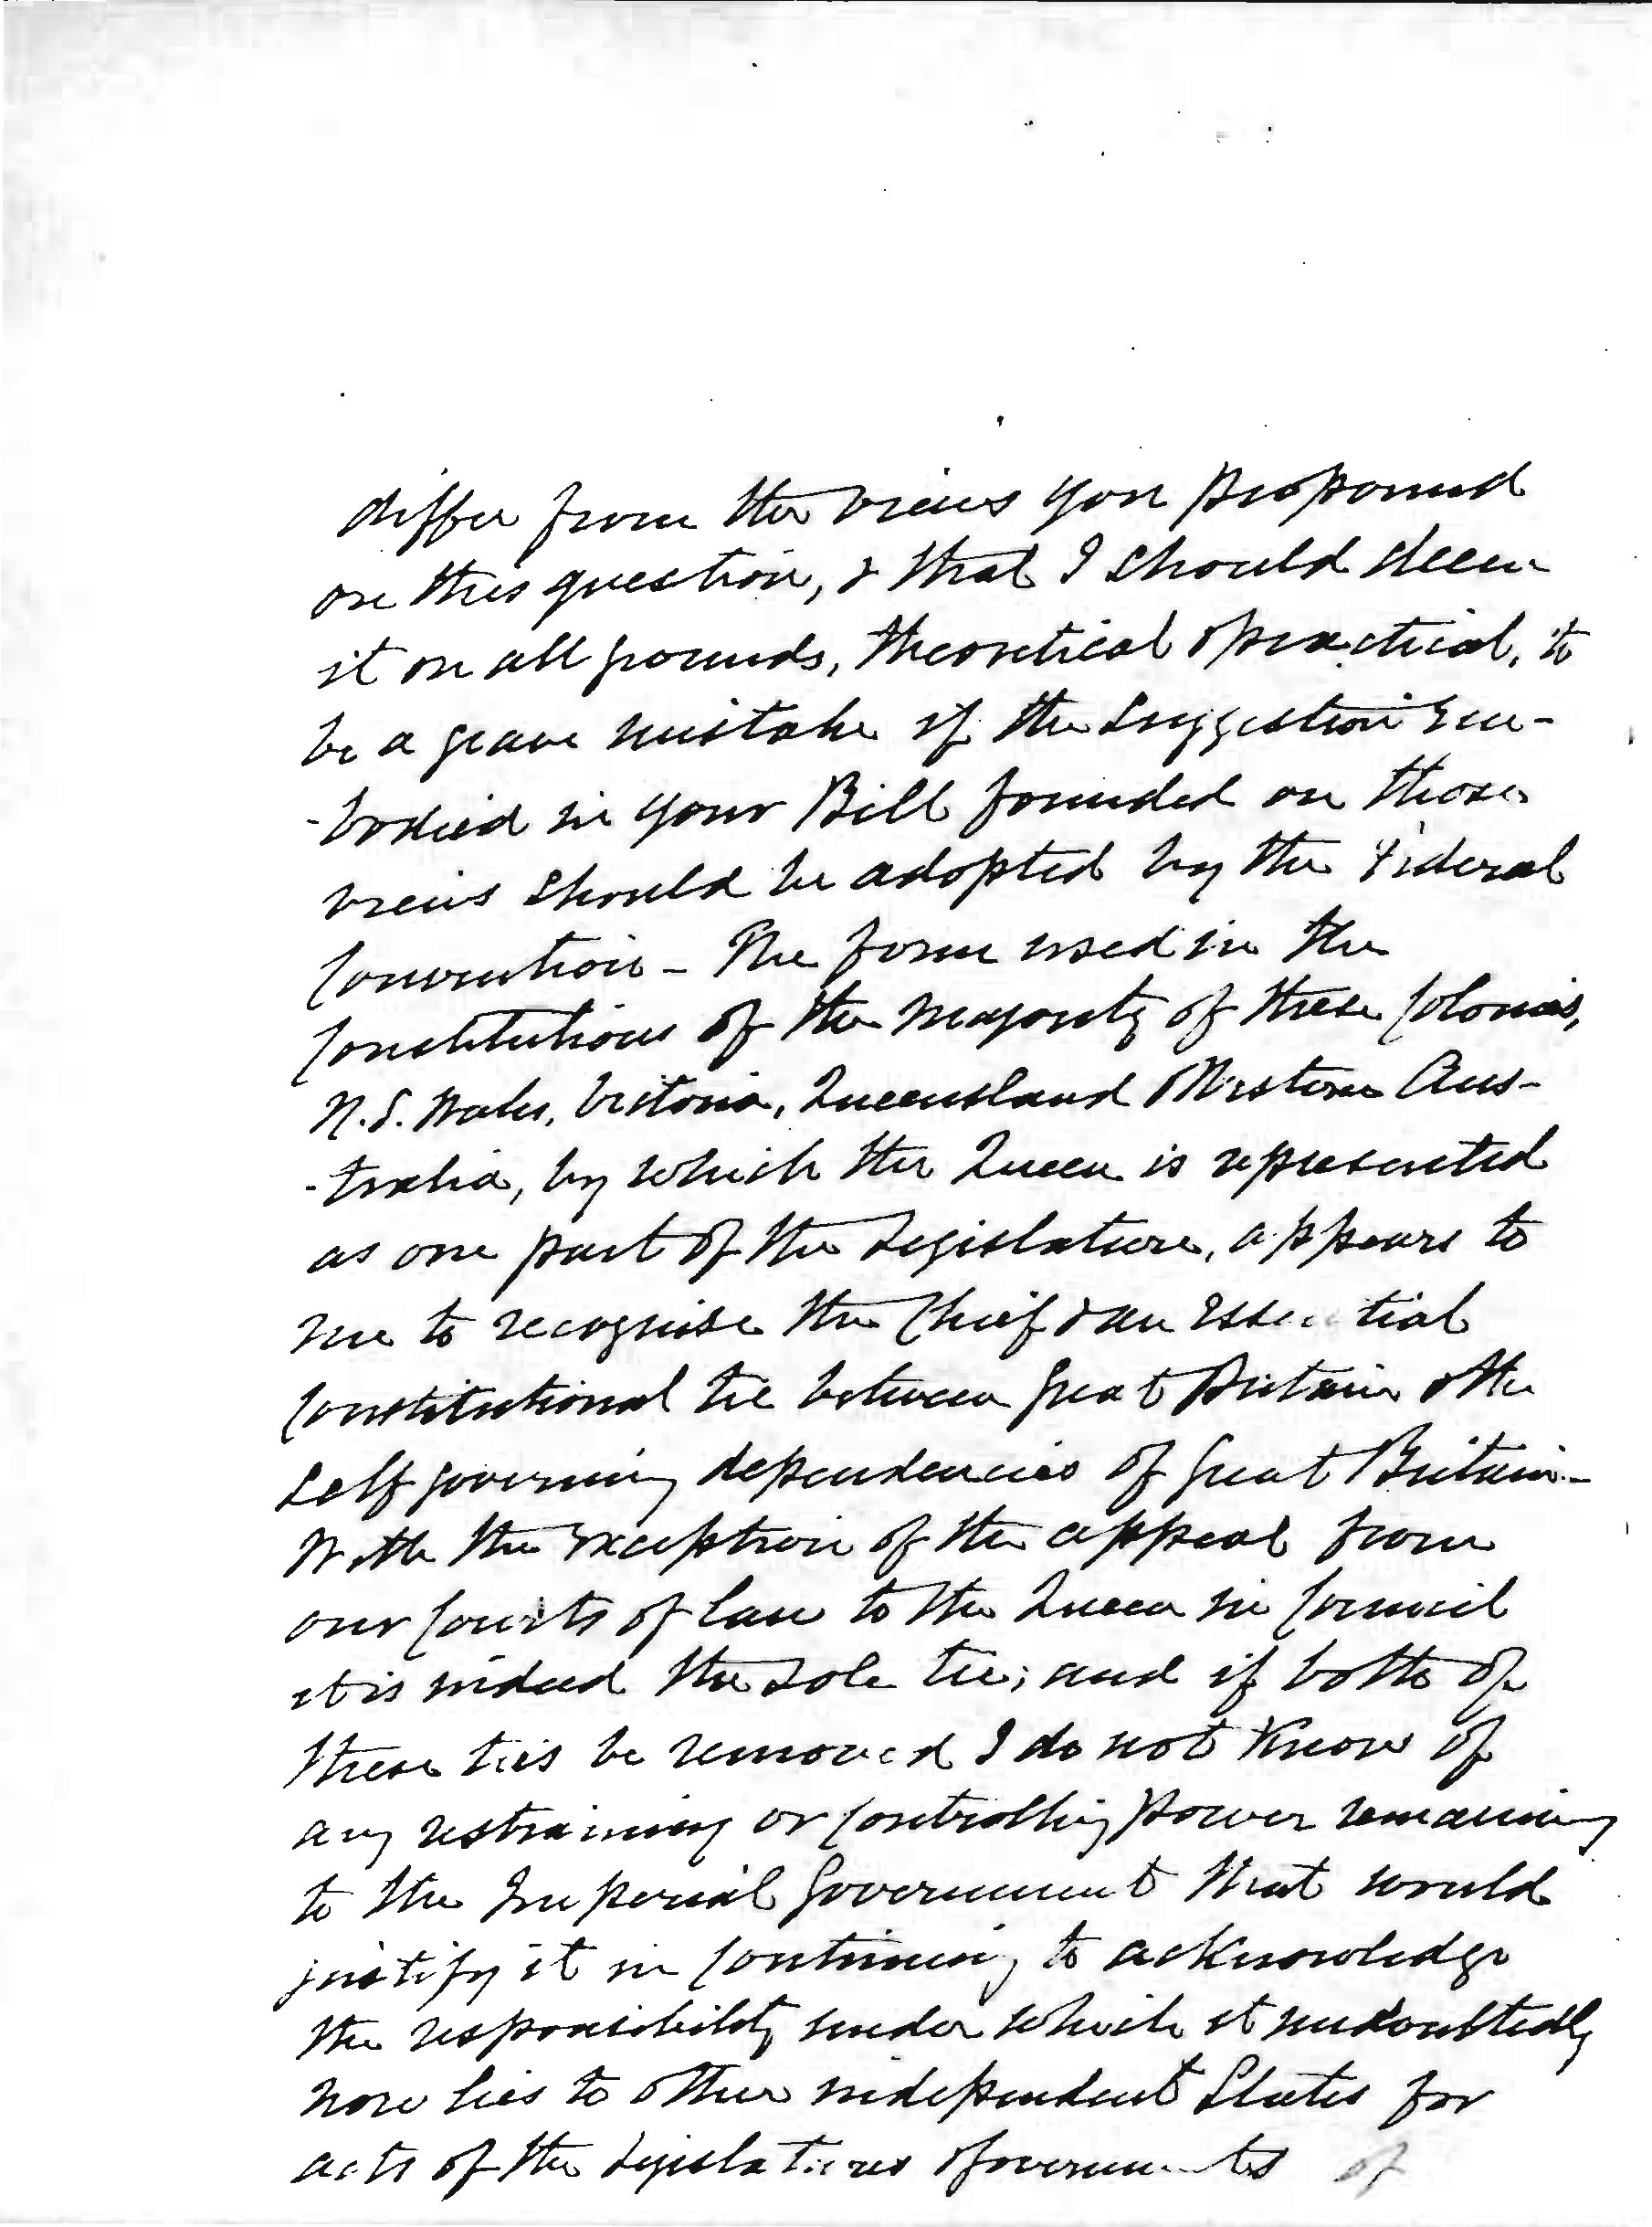 differ from the views you propound
on this question, & that I should deem
it on all grounds, theoretical & practical, to
be a grave mistake if the Suggestion em-
-bodied in your Bill founded on those
views should be adopted by the Federal
Convention - The form used in the
Constitutions of the majority of these Colonies,
N.S. Wales, Victoria, Queensland & Western Aus-
-tralia, by which the Queen is represented
as one part of the Legislature, appears to
me to recognise the Chief & an essential
Constitutional tie between Great Britain & the
Self governing dependencies of Great Britain -
With the exception of the appeal from
our Courts of law to the Queen in Council
it is indeed the sole tie; and if both of
these ties be removed I do not know of
any restraining or Controlling power remaining
to the Imperial Government that would
justify it in Continuing to acknowledge
the responsibility under which it undoubtedly
now lies to other independent States for
acts of the Legislatures & Governments of